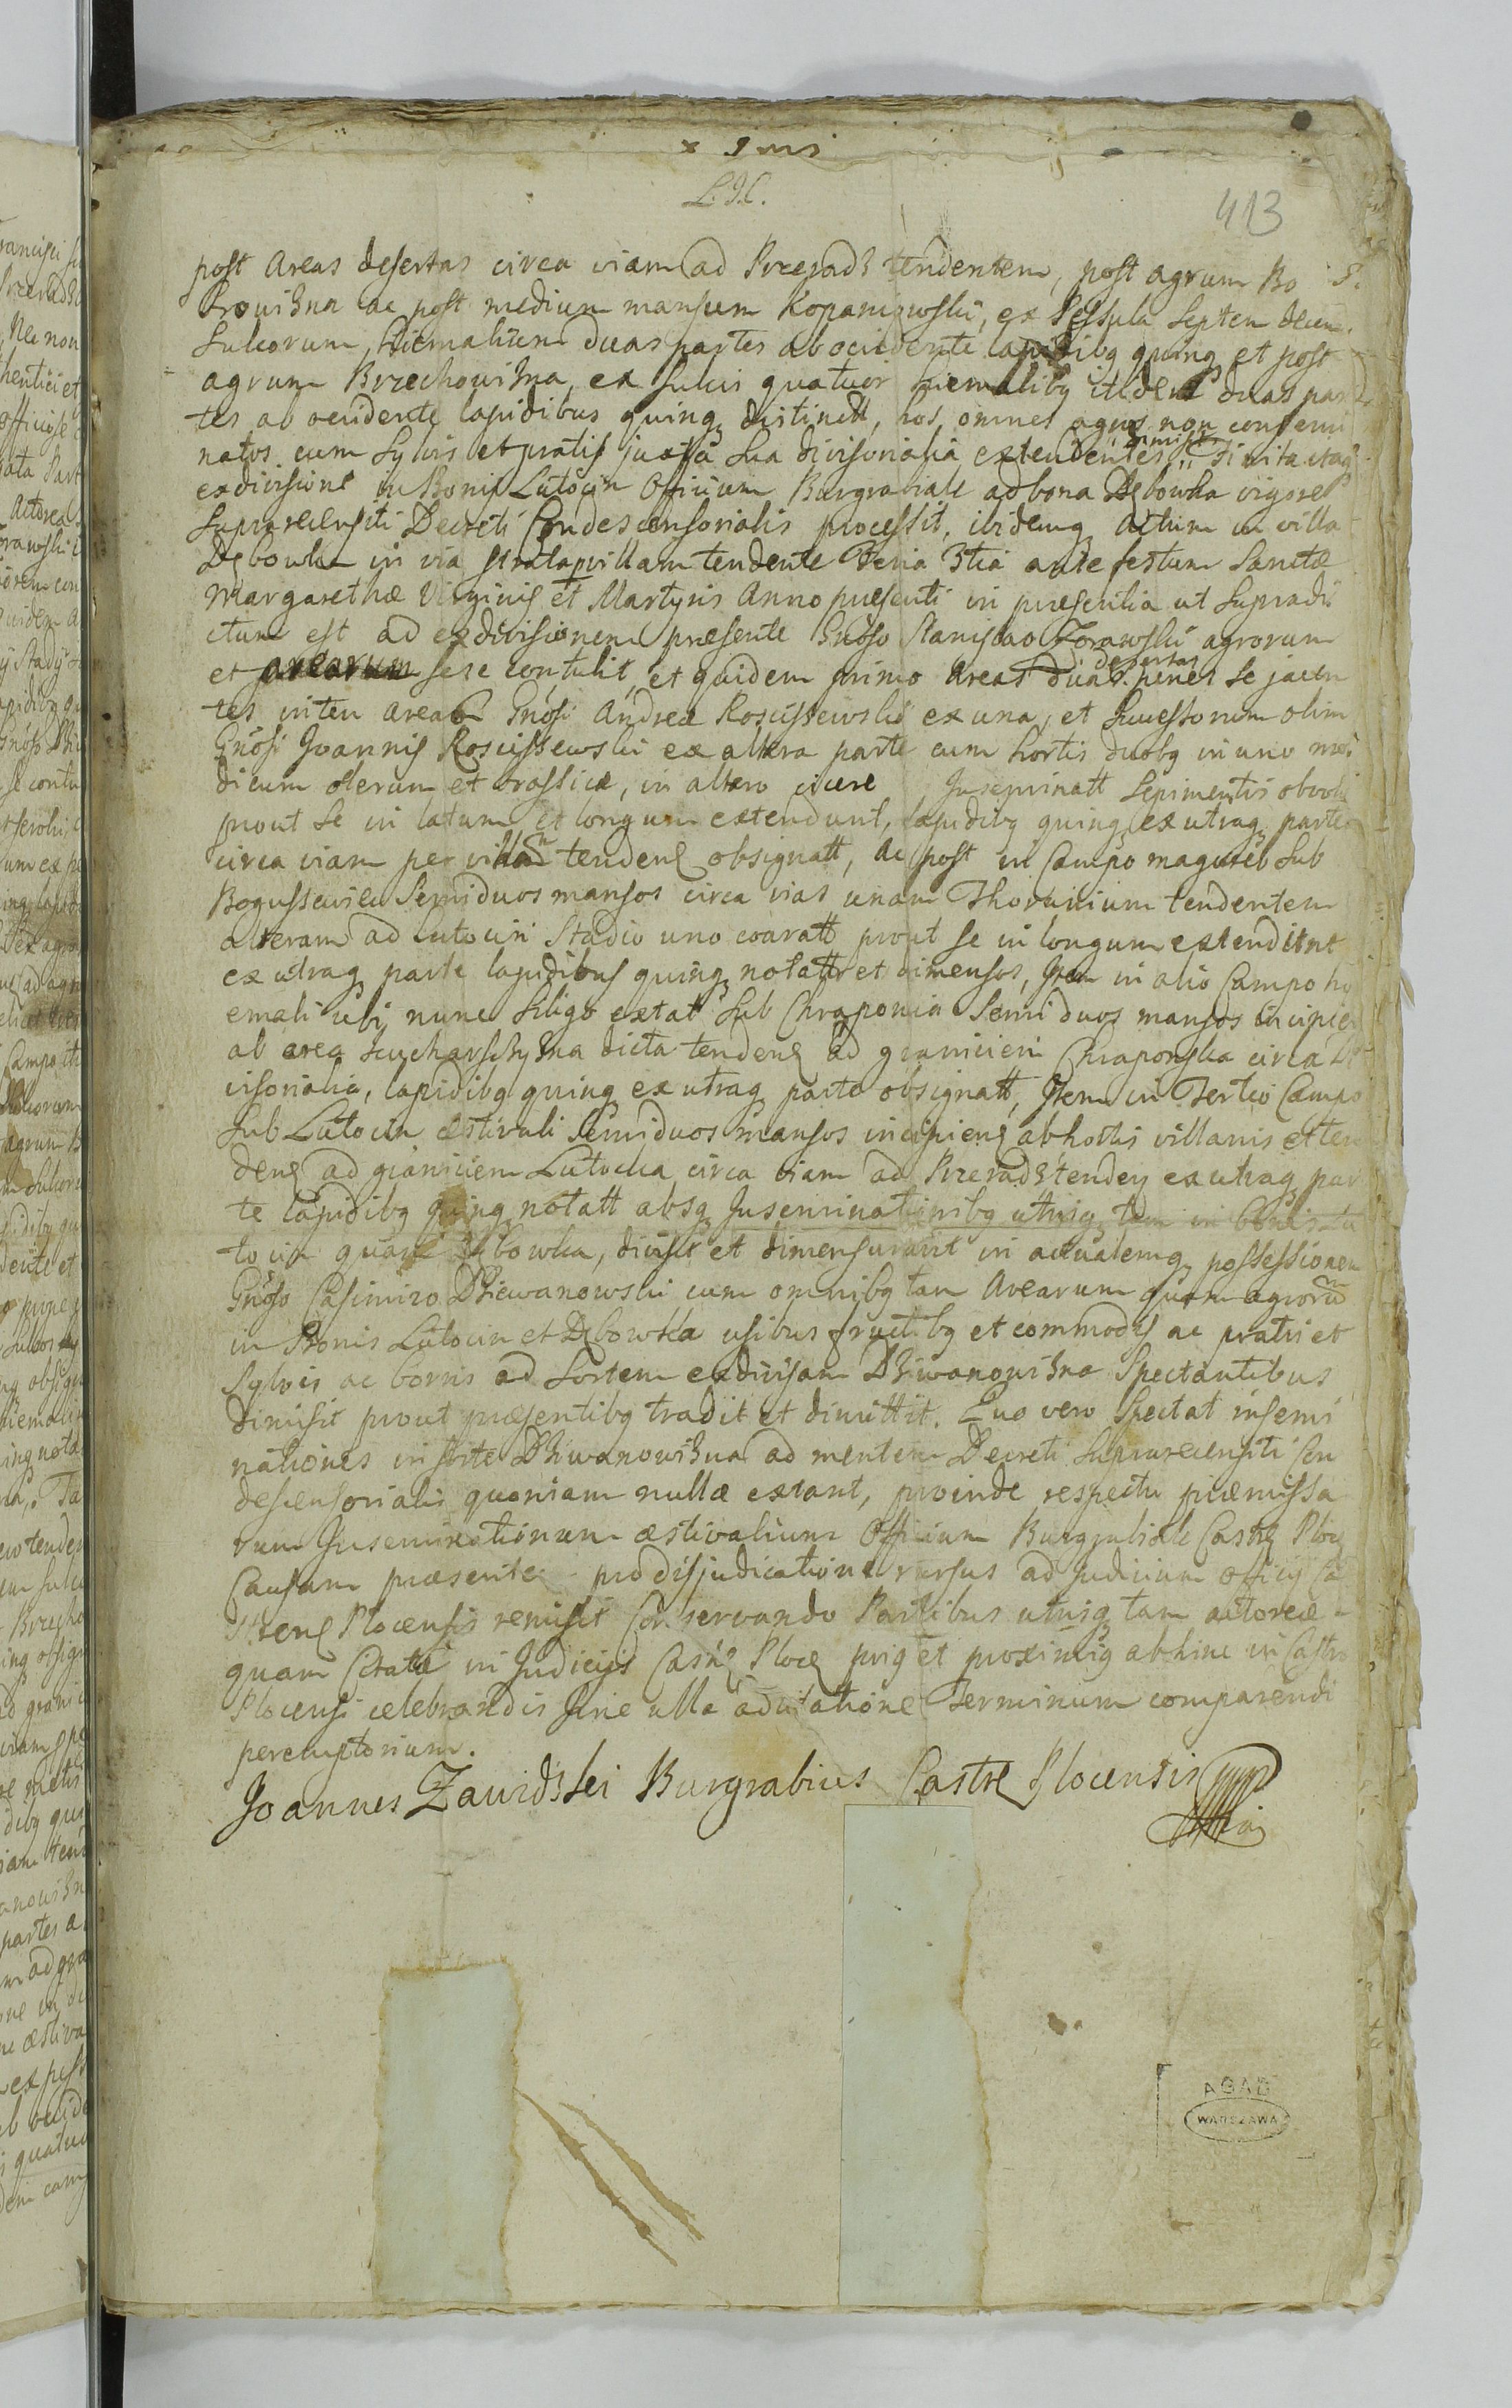 413
post Areas desertas circa viam ad Przeradz tendentem, post agrum Bo
Prowizna ac post medium mansum Kopaniowski, ex Pessula Septem decem
Sulcorum, Hiemalium duas partes ab occidente lapidibq quinq et post
agrum Brzechowizna, ex sulcis quatuor hiemalibq itidem duas par
tes ab occidente lapidibus quinq distinctt, hos omnes agros non consemi
natos cum Sylvis et pratis juxta sua divisorialia extendentes dimisit Finita itaq
exdivisione in Bonis Lutocin Officium Burgrabiale ad bona Dębowka vigore
Suprarecensiti Decreti Condescensorialis processit, ibidemq actum in villa
Dębowka in via strata p villam tendente Feria 3tia ante festum Sanctæ
Margarethæ Virginis et Martyris Anno præsenti in præsentia ut Supradi
ctum est ad exdivisionem præsente Gnoso Stanislao Zorawski agrorum
et arearum sese contulit, et quidem primo Areas duas desertas penes se jacen
tes inter areas Gnosi Andreæ Rosciszewski ex una, et Successorum olim
Gnosi Joannis Rosciszewski ex altera parte cum hortis duobq in uno mo
dicum olerum et brassicæ, in altero cicere Inseminatt Sepimentis obvol
prout se in latum et longum extendunt, lapidibq quinq ex utraq parte
circa viam per villam tendens obsignatt, ac post in Campo magureb Sub
Boguszewiec Semiduos mansos circa vias unam Thorunium tendentem
alteram ad Lutocin Stadio uno coaratt prout se in longum extendunt
ex utraq parte lapidibus quinq notatt et dimensos, Item in alio Campo hy
emali ubi nunc Siligo extat Sub Chraponia Semi duos mansos incipien
ab area Kucharszczyzna dicta tendens ad granicien Chraponska circa di
visorialia, lapidibq quinq ex utraq parte obsignatt, Item in Tertio Campo
Sub Lutocin æstivali Semiduos mansos incipiens ab hortis villanis et ten
dens ad graniciem Lutocka circa viam ad Przeradz tenden ex utraq par
te lapidibq quinq notatt absq Inseminationibq utrisq tam in Bonis Lu
tocin quam Dębowka, divisit et dimensuravit in actualemq possessionem
Gnoso Casimiro Dziewanowski cum omnibq tam Arearum quam agrorum
in Bonis Lutocin et Dębowka usibus fructibq et commodis ac pratis et
Sylvis ac borris ad Sortem exdivisam Dziwanowizna Spectantibus
dimisit prout præsentibq tradit et dimittit. Quo vero Spectat insemi
nationes in Sorte Dziwanowizna ad mentem Decreti Suprarecensiti Con
descensorialis quoniam nullæ extant, proinde respectu præmissa
rum Inseminationum æstivalium Officium Burgrabiale Castre Ploc
Causam præsente pro disjudicatione rursus ad Judicium officij Ca
strens Plocensis remisit Conservando Partibus utrisq tam actoreæ
quam Citatæ in Judicijs Castre Ploce pris et proximis abhinc in Castro
Plocensi celebrandis Sine ulla adcitatione Terminum comparendi
peremptorium.
Joannes Zawidzki Burgrabius Castre Plocensis
AGAD
WARSZAWA